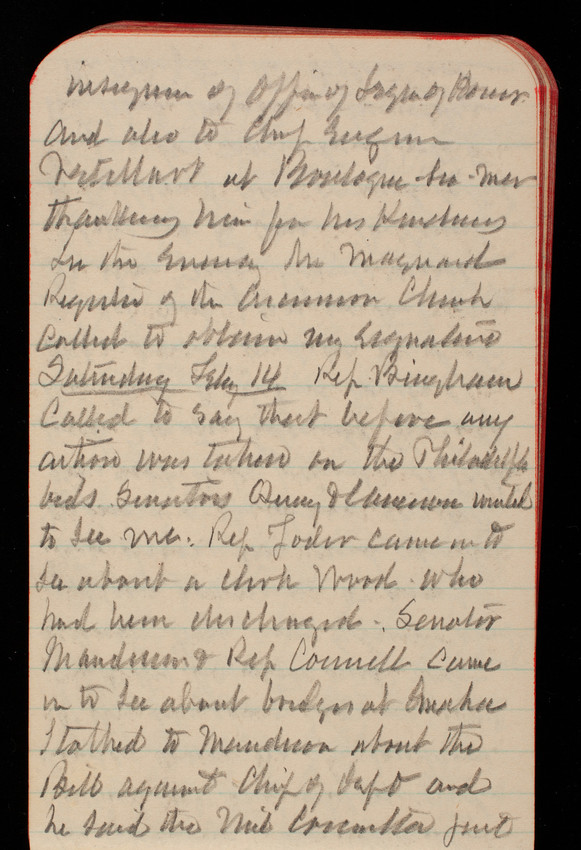 insignia of Officer of Legn of Honor
and also to Chf Engineer
at Boulogne-Sur-Mer
thanking him for his kindness
In the evening Mr Maynard
Register of the Common Church
called to obtain my signature
Saturday Feby 14 Rep Bingham
called to say that before any
action was taken on the Philadelpha
beds. Senators Quay & Cameron wanted
to see me. Rep Yoder came in to
see about a clerk Wood who
had been discharged. Senator
Manderson & Rep Connell came
in to see about bridges at Omaha
I talked to Manderson about the
Bill against Chif of Dept and
he said the Mil Committee just